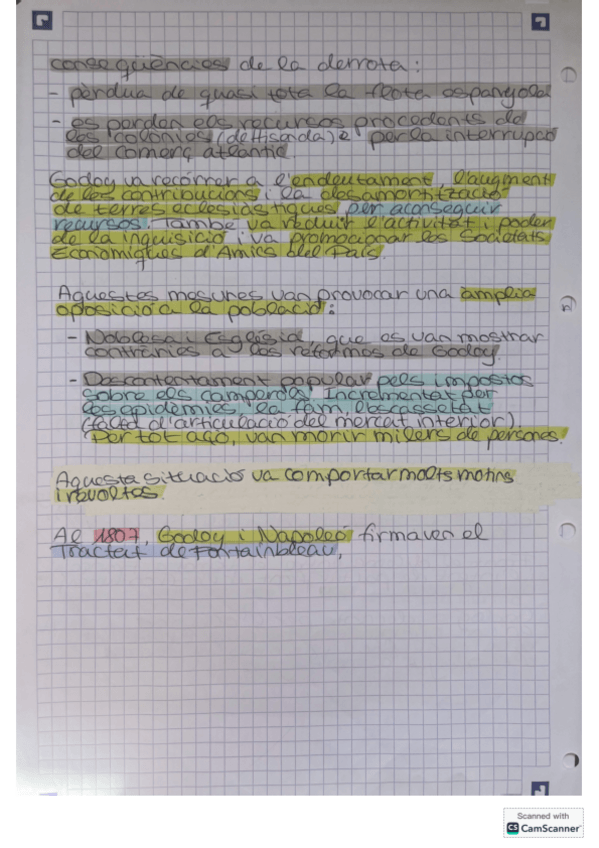 conseqüències de la derrota:
- pèrdua de quasi tota la flota espanyola
- es perden els recursos procedents de
les colònies (deHisenda) e per la interrupció
del comerç atlàntic.
Godoy va recórrer a l'endeutament, l'augment
de les contribucions i la desamortització
de terres eclesiàstiques per aconseguir
recursos. També va reduir l'activitat i poder
de la inquisició i va promocionar les Societats
Econòmiques d'Amics del País.
Aquestes mesures van provocar una àmplia
oposició a la població:
- Noblesa i Església, que es van mostrar
contràries a les reformes de Godoy.
- Descontentament popular pels impostos
sobre els camperols. Incrementat per
les epidèmies, la fam, l'escassetat
(falta d'articulació del mercat interior).
Per tot açò, van morir milers de persones.
Aquesta situació va comportar molts motins
i revoltes.
Al 1807, Godoy i Napoleó firmaven el
Tractat de Fontainbleau,
Scanned with
CS CamScanner